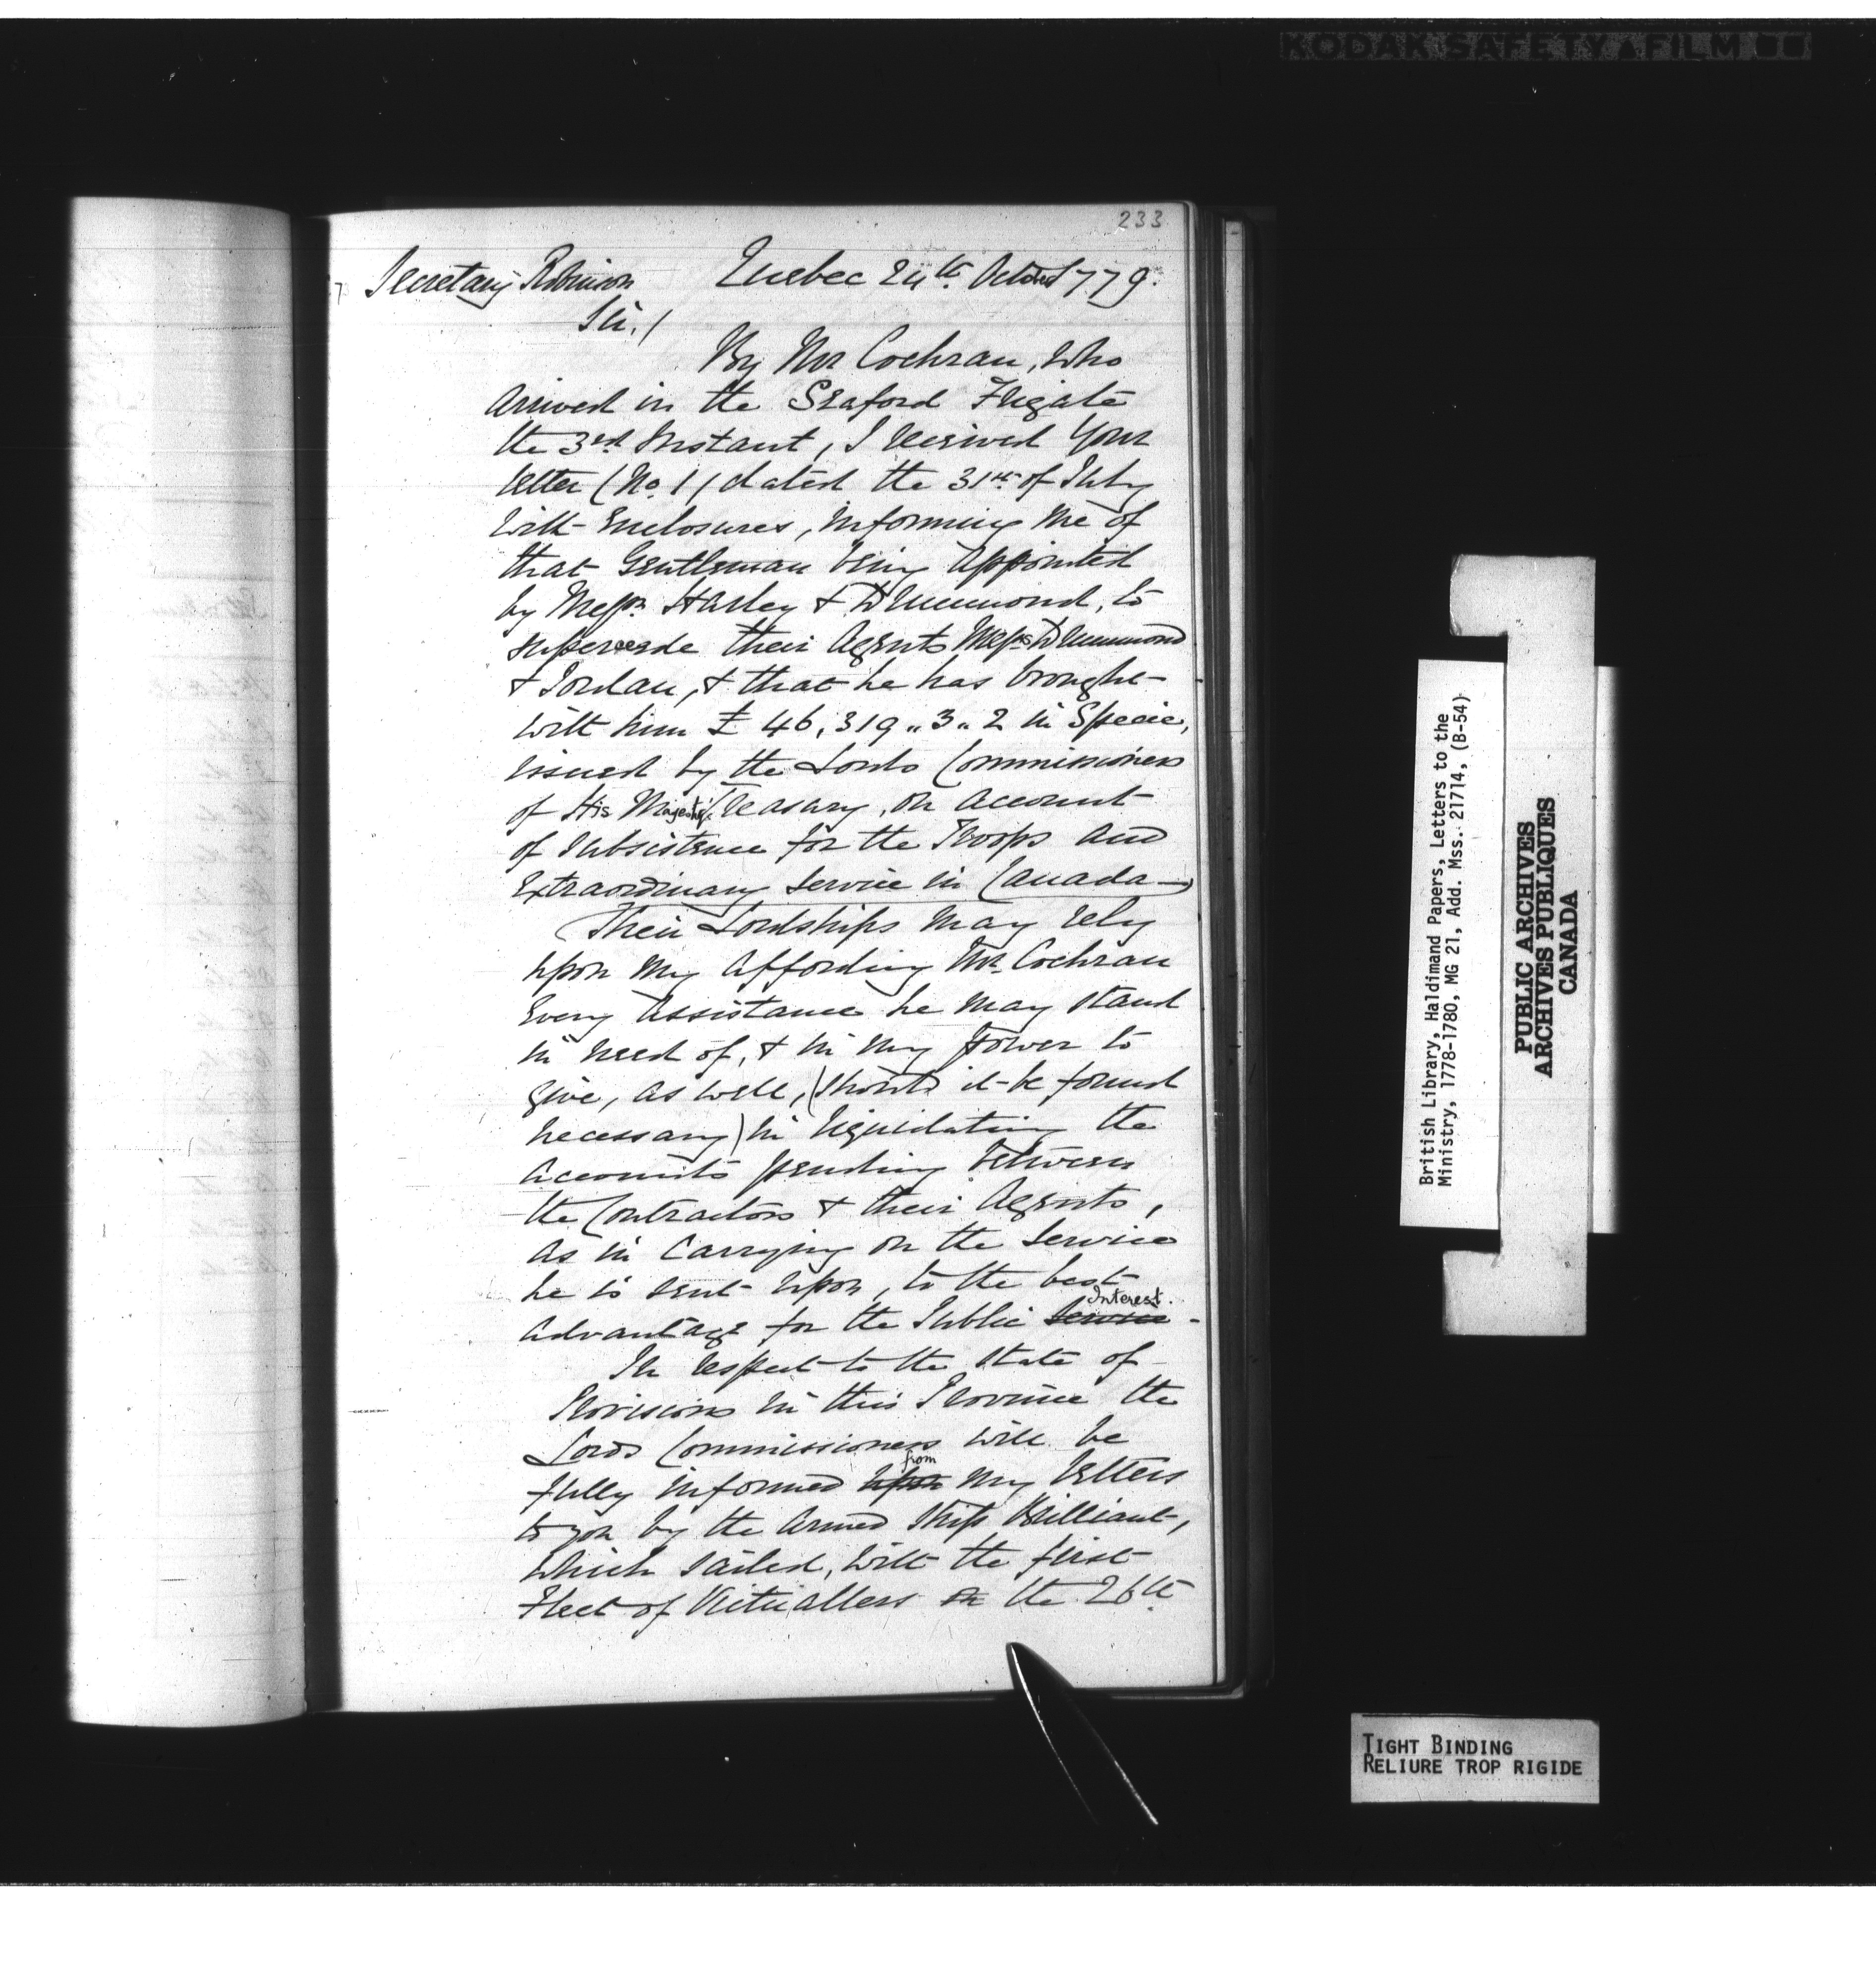 KODAK SAFETY FILM
233
Secretary Robinson Quebec 24th. October 1779.
Sir./
By Mr Cochran, who
arrived in the Seaford Frigate
the 3rd Instant, I received Your
letter (No. 1/ dated the 31st of July
with Enclosures, informing me of
that Gentleman being appointed
by Messrs. Harley & Drummond, to
supercede their Agents Messrs Drummond
& Jordan, & that he has brought
with him £ 46,319 „ 3 „ 2 in Specie,
issued by the Lords Commissioners
of His Majesty's Treasury, on account
of Subsistence for the Troops and
Extraordinary Service in Canada—
Their Lordships may rely
upon my affording Mr. Cochran
every assistance he may stand
in need of, & in my Power to
give, as well, (should it be found
necessary) in liquidating the
accounts pending between
the Contractors & their Agents,
as in Carrying on the Service
he is sent upon, to the best
advantage for the Public Service Interest.
In respect to the state of
Provisions in this Province the
Lords Commissioners will be
fully informed upon from my letters
to you by the Armed Ship Brilliant,
which sailed, with the first
Fleet of Victuallers on the 26th.
British Library, Haldimand Papers, Letters to the
Ministry, 1778-1780, MG 21, Add. Mss. 21714, (B-54)
PUBLIC ARCHIVES
ARCHIVES PUBLIQUES
CANADA
TIGHT BINDING
RELIURE TROP RIGIDE